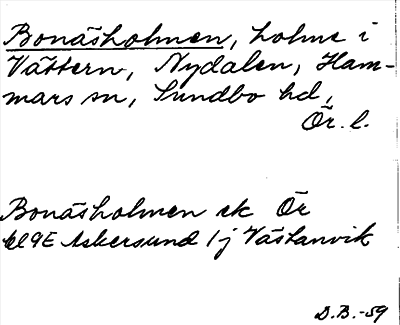 Bonäsholmen, holme i
Vättern, Nydalen, Ham-
mars sn, Sundbo hd,
Ör. l.
Bonäsholmen ek Ör
bl 9E Askersund 1j Västanvik
D.B.-59